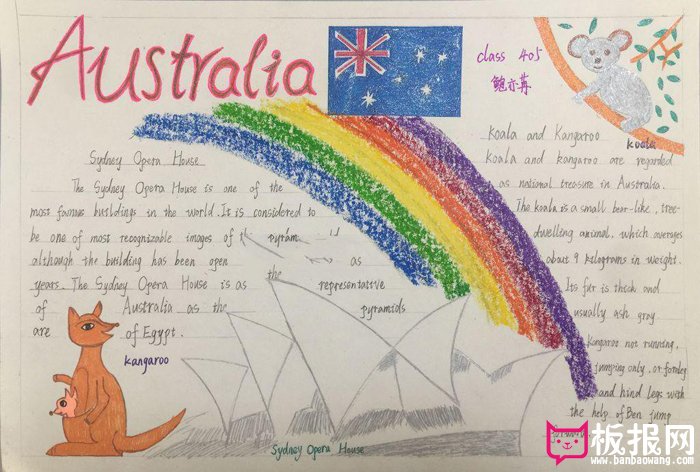 Australia
class 405
鲍亦苒
koala
Sydney Opera House
The Sydney Opera House is one of the
most famous buildings in the world. It is considered to
be one of most recognizable images of
although the building has been open as the
years. The Sydney Opera House is as representative
of Australia as the pyramids
are of Egypt.
kangaroo
Sydney Opera House
Koala and Kangaroo
koala and kangaroo are regarded
as national treasure in Australia.
The koala is a small bear-like, tree-
dwelling animal, which averages
about 9 kilograms in weight.
Its fur is thick and
usually ash gray.
Kangaroo not running,
jumping only, or
and hind legs with
the help of Ben jump
板报网
www.banbaowang.com